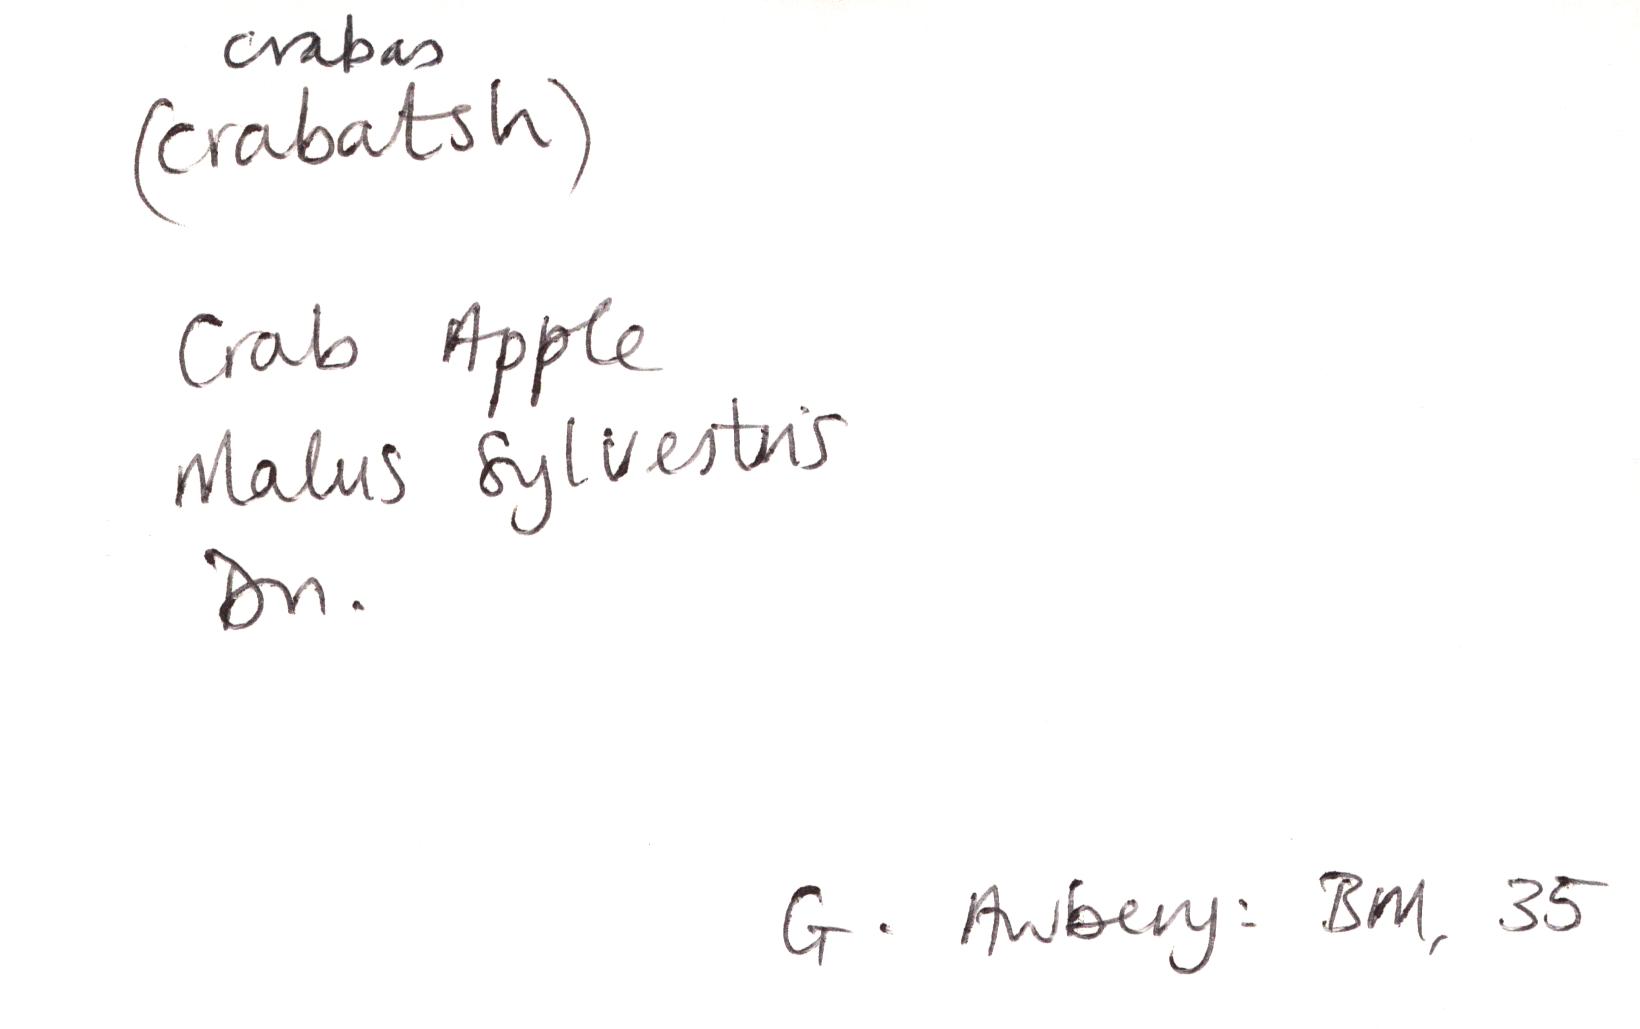 crabas
(crabatsh)
Crab Apple
Malus Sylvestris
Dn.
G. Awbery: BM, 35